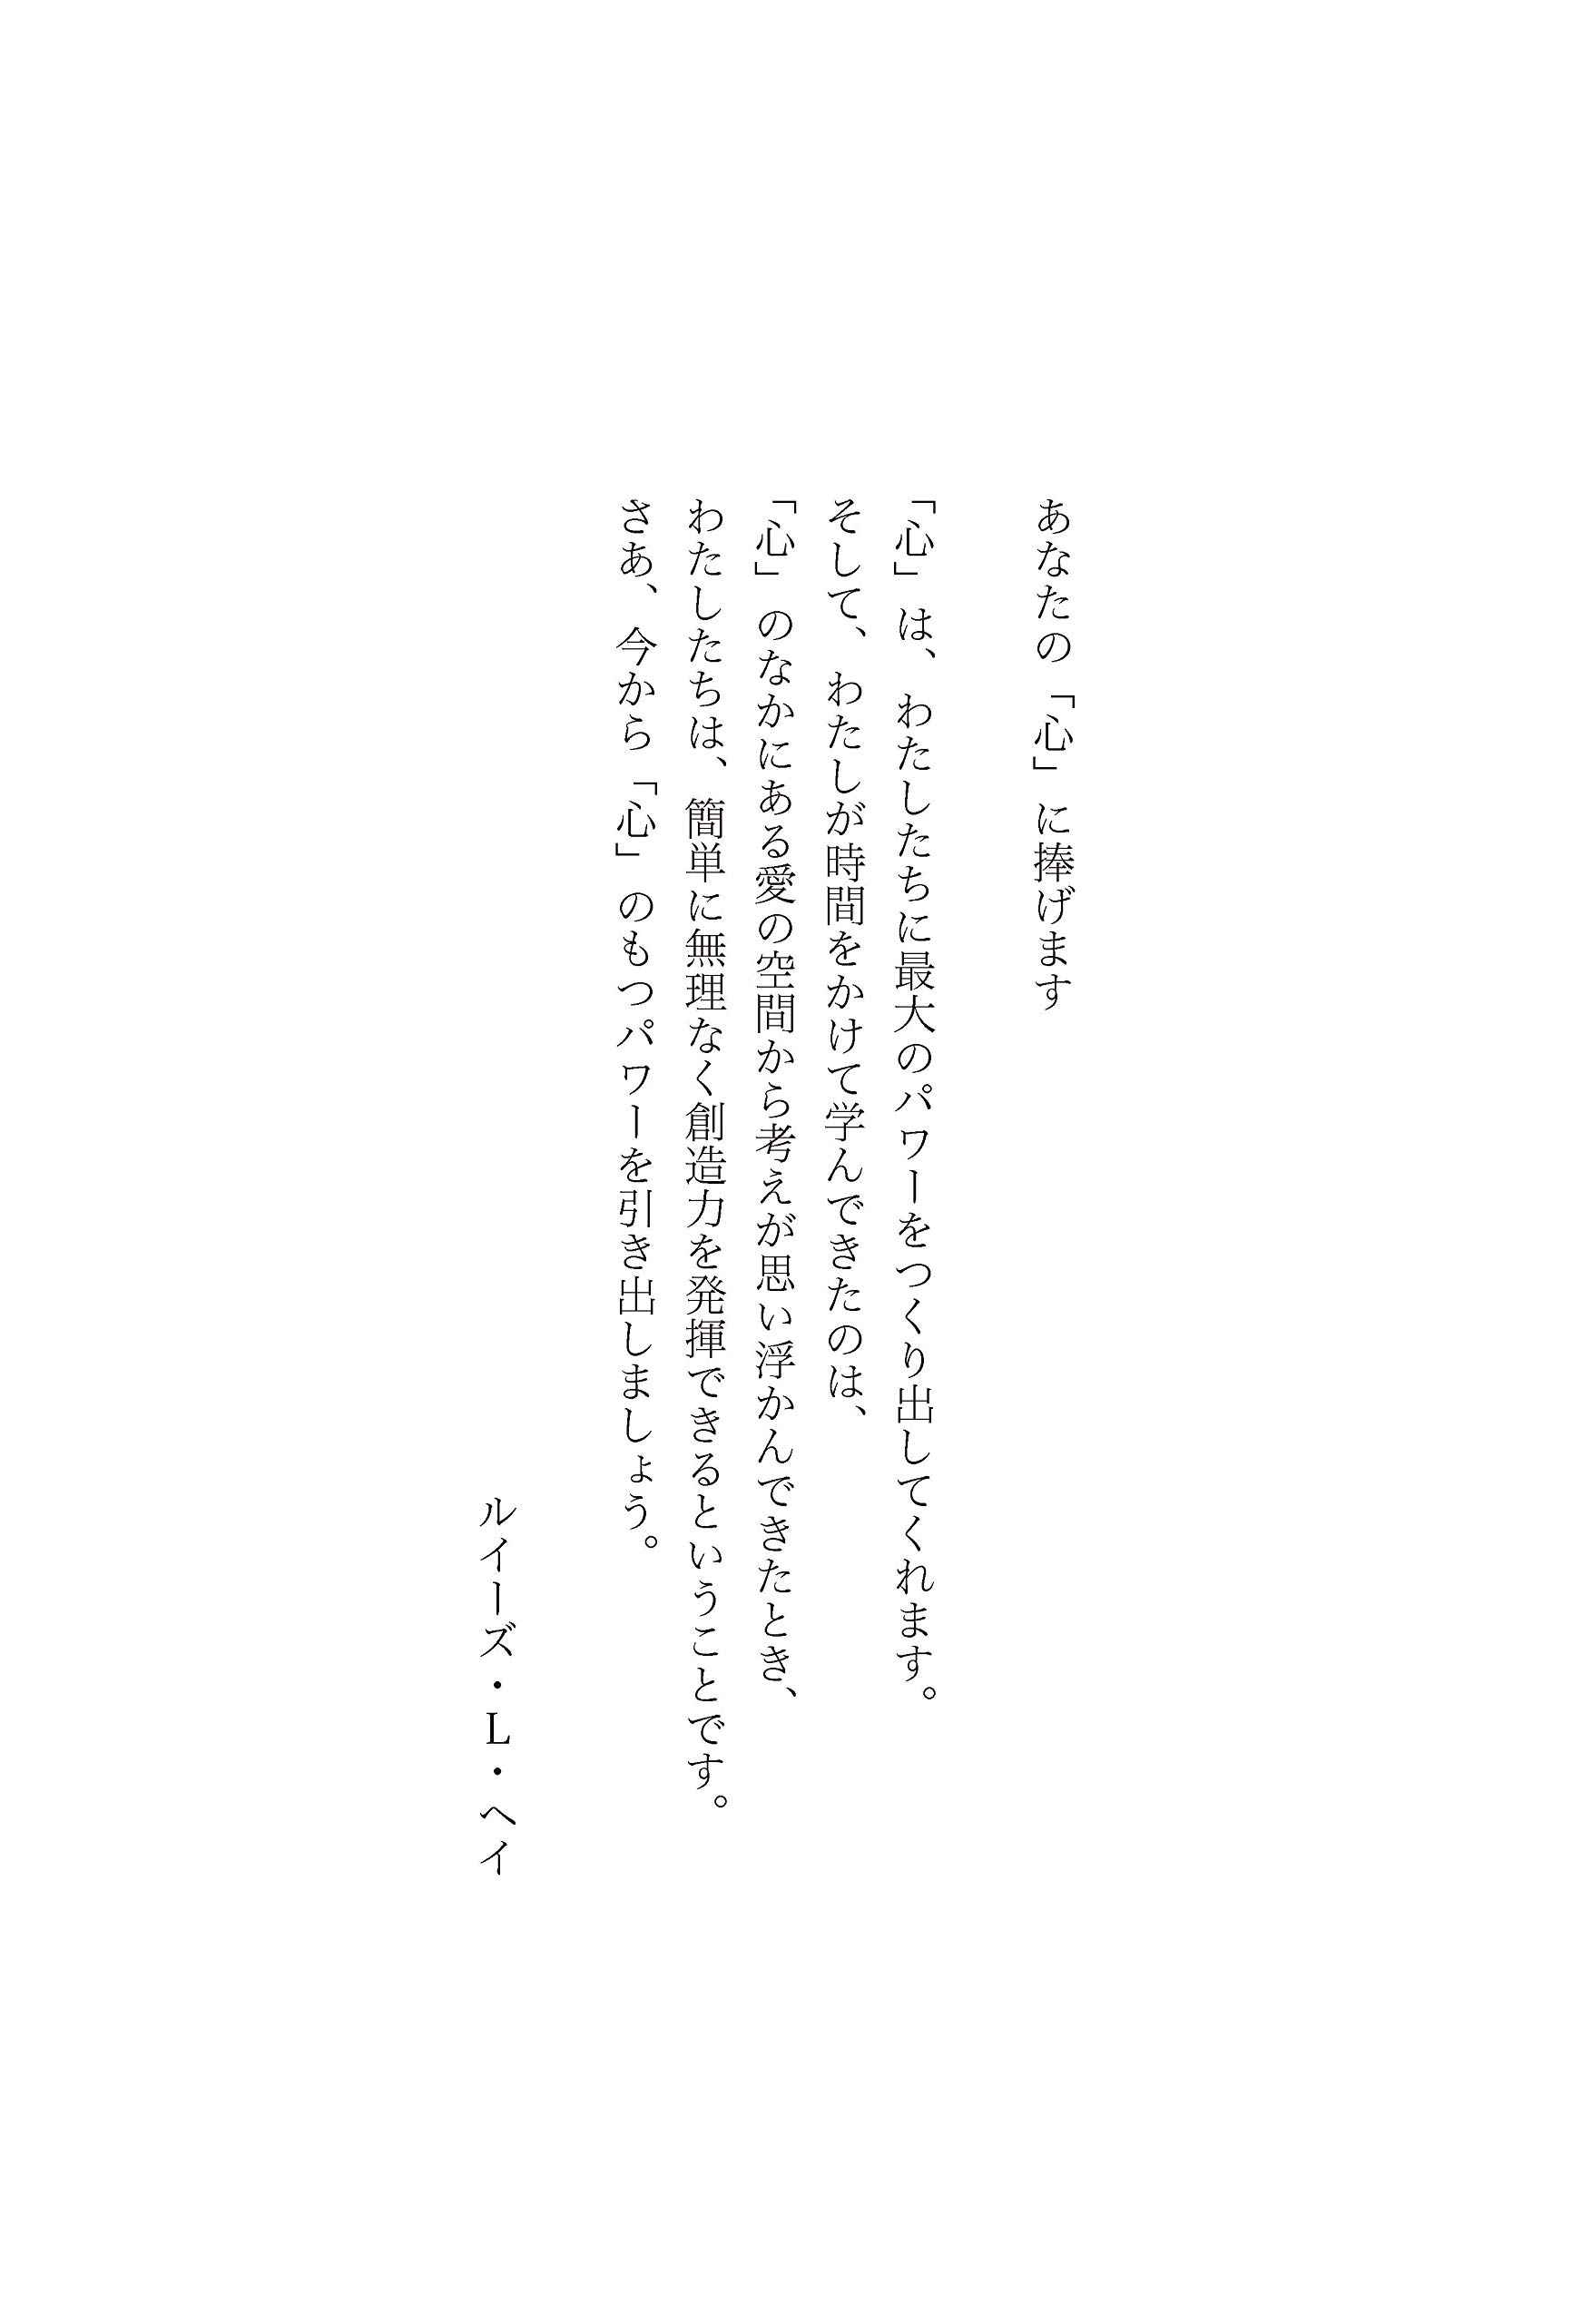 あなたの「心」に捧げます
「心」は、わたしたちに最大のパワーをつくり出してくれます。
そして、わたしが時間をかけて学んできたのは、
「心」のなかにある愛の空間から考えが思い浮かんできたとき、
わたしたちは、簡単に無理なく創造力を発揮できるということです。
さあ、今から「心」のもつパワーを引き出しましょう。
ルイーズ・L・ヘイ